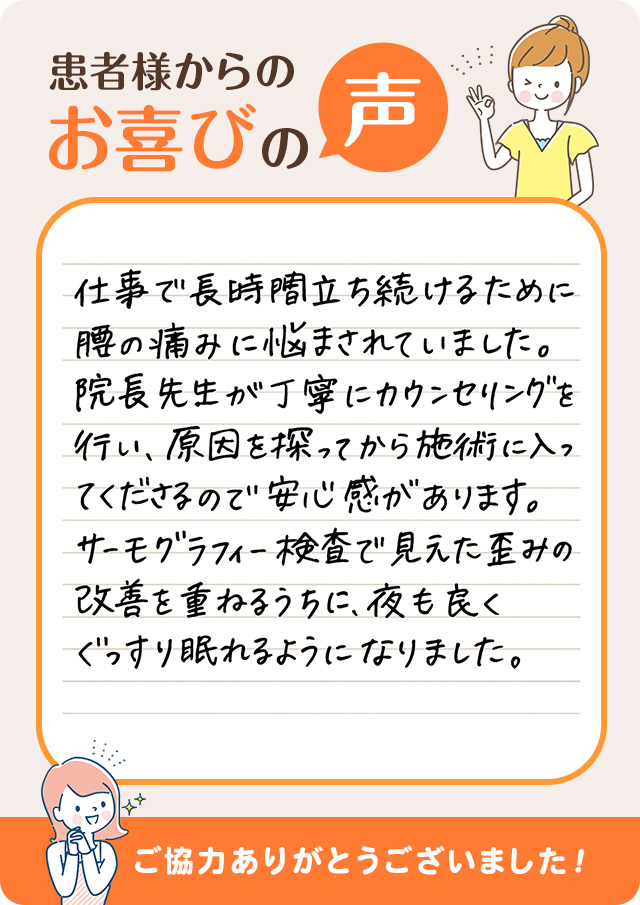 患者様からの
お喜びの声
仕事で長時間立ち続けるために
腰の痛みに悩まされていました。
院長先生が丁寧にカウンセリングを
行い、原因を探ってから施術に入っ
てくださるので安心感があります。
サーモグラフィー検査で見えた歪みの
改善を重ねるうちに、夜も良く
ぐっすり眠れるようになりました。
ご協力ありがとうございました!